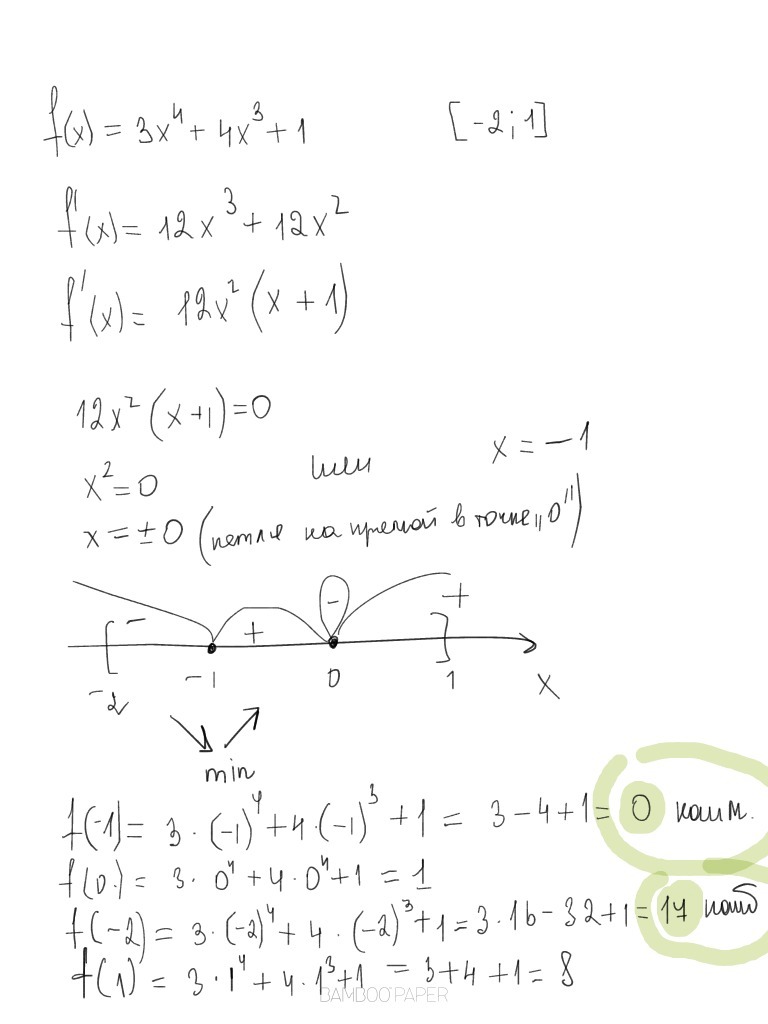 f(x) = 3x⁴ + 4x³ + 1 [-2; 1]
f'(x) = 12x³ + 12x²
f'(x) = 12x² (x + 1)
12x² (x+1) = 0
x² = 0 или x = -1
x = ±0 (петля на прямой в точке „0")
- + - +
-2 -1 0 1 X
min
f(-1) = 3 · (-1)⁴ + 4 · (-1)³ + 1 = 3 - 4 + 1 = 0 наим.
f(0) = 3 · 0⁴ + 4 · 0⁴ + 1 = 1
f(-2) = 3 · (-2)⁴ + 4 · (-2)³ + 1 = 3 · 16 - 32 + 1 = 17 наиб
f(1) = 3 · 1⁴ + 4 · 1³ + 1 = 3 + 4 + 1 = 8
BAMBOO PAPER